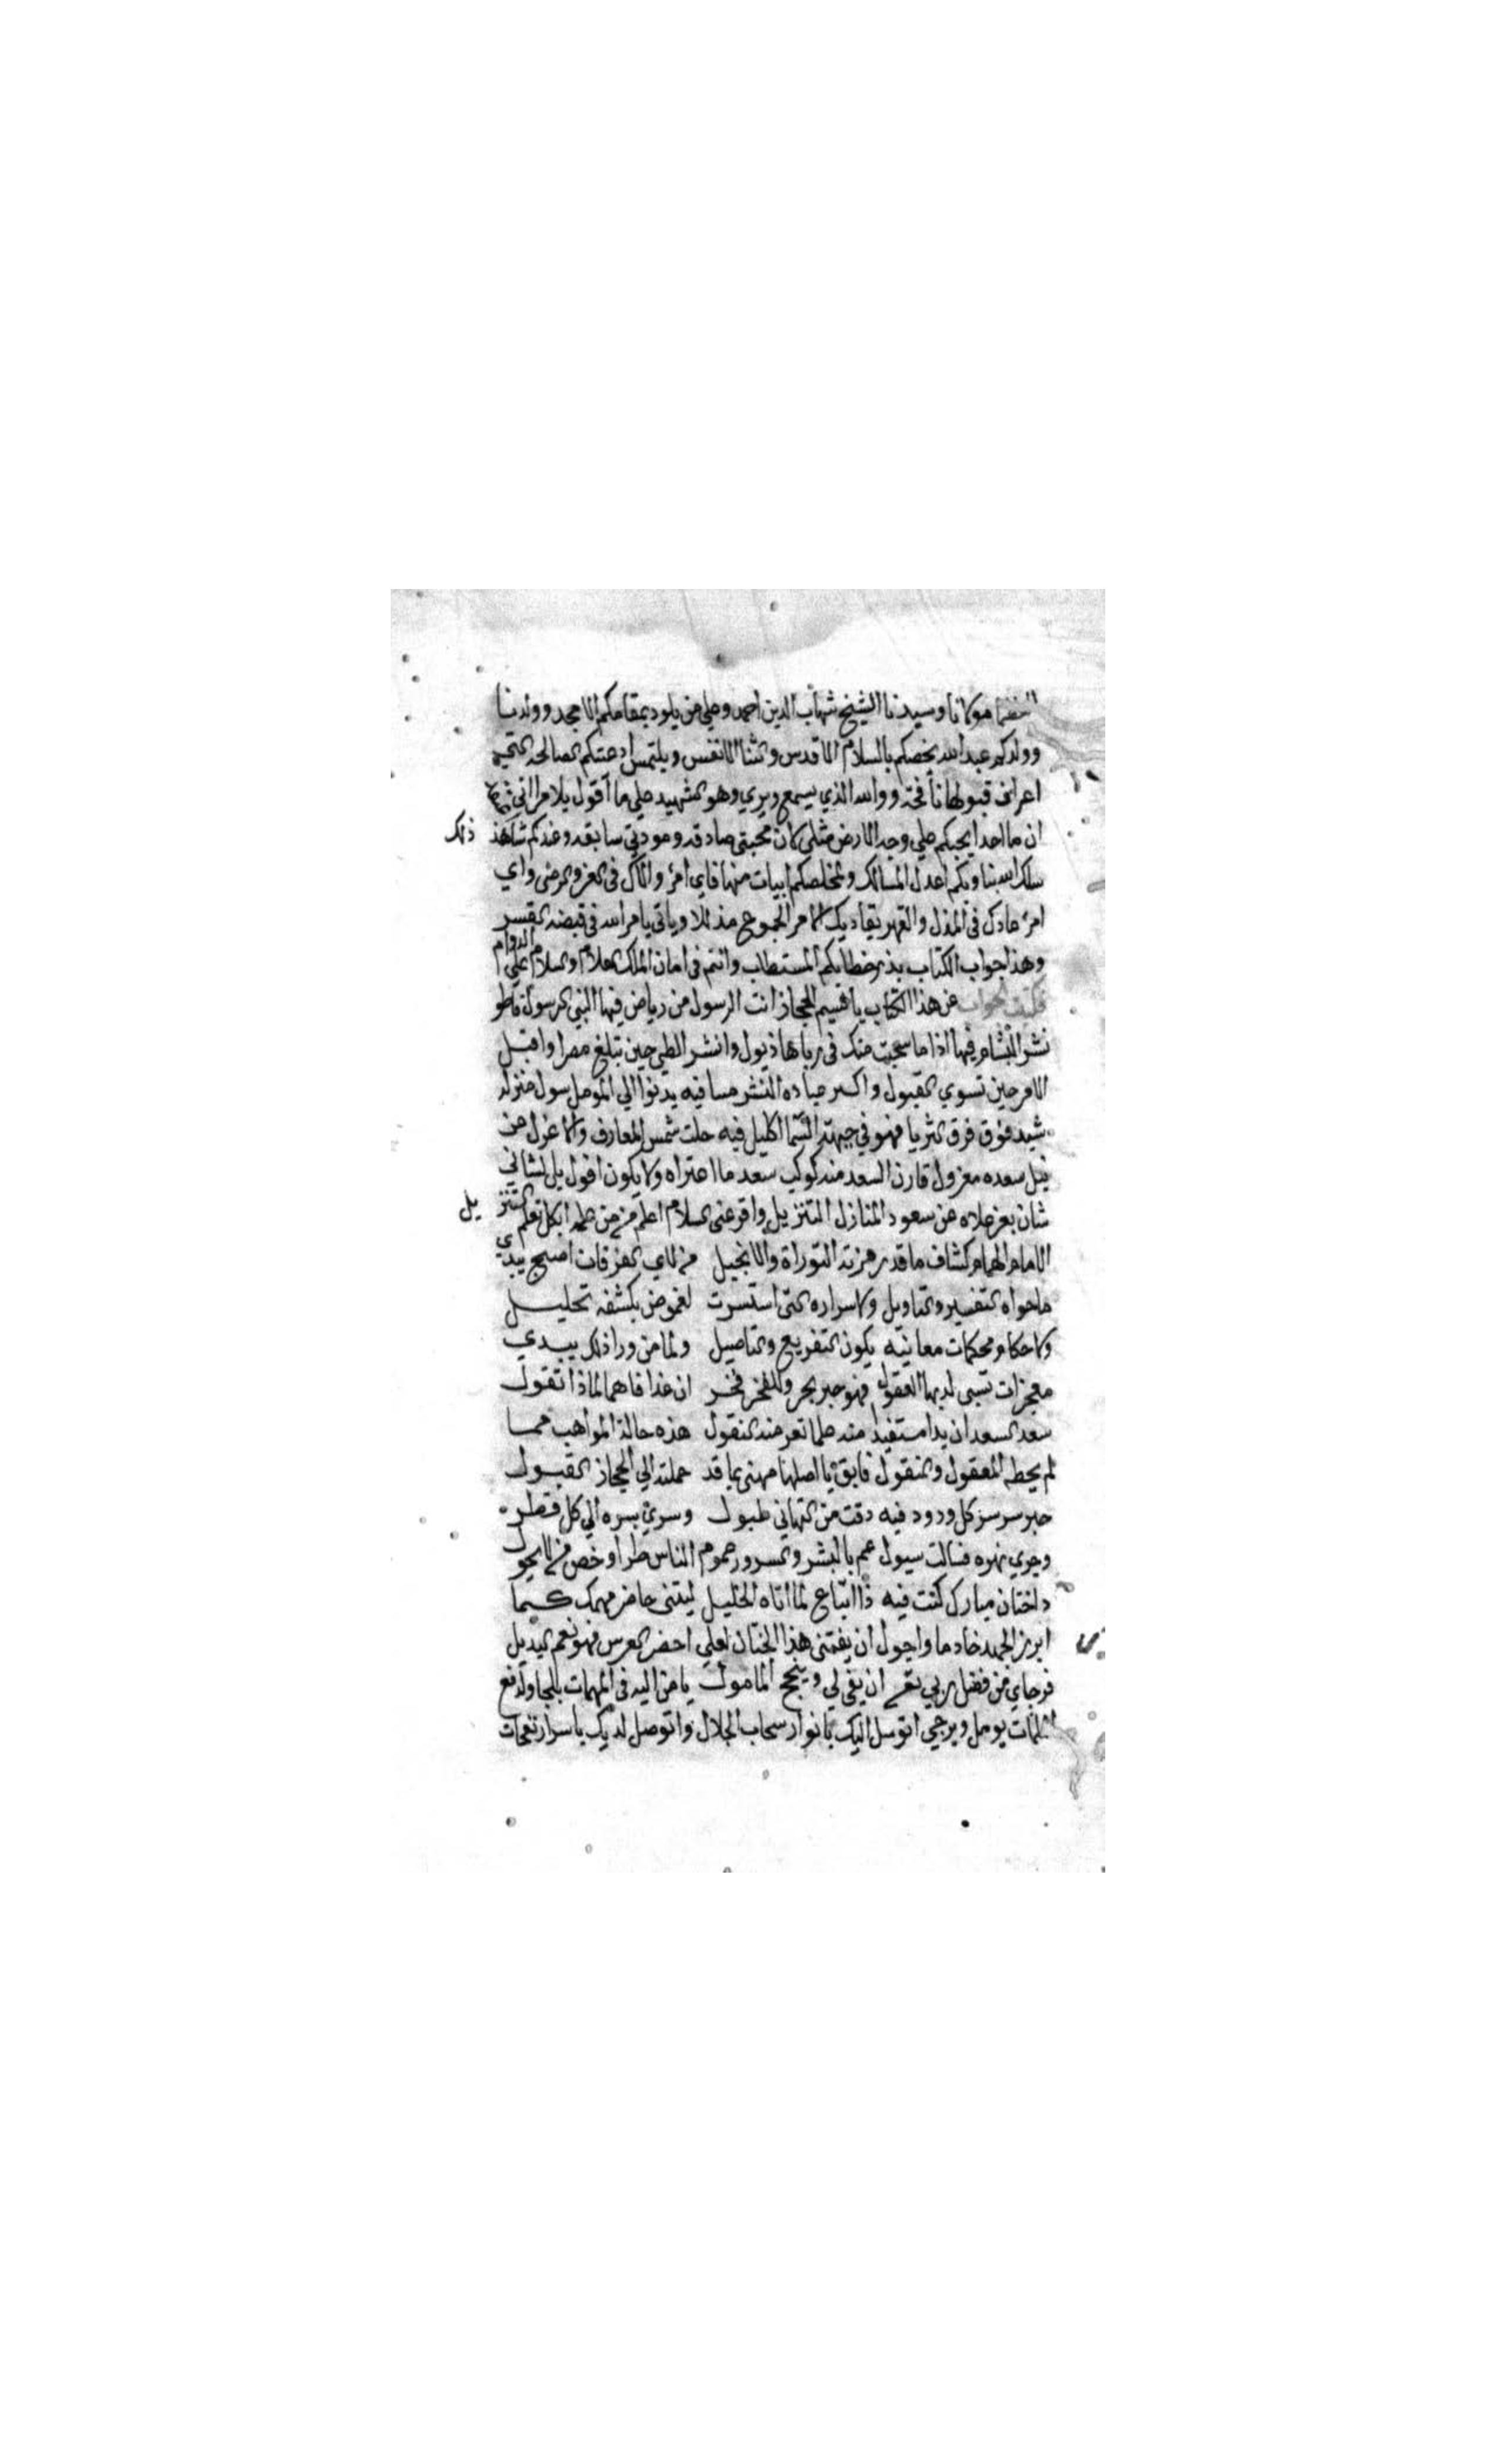 مولانا وسيدنا الشيخ شهاب الدين احمد وعلي من يلوذ بمقامكم الامجد وولدنا
وولدكم عبد الله يخصكم بالسلام الاقدس والثنا الانفس ويلتمس ادعيتكم الصالحة التي
قبولها نافحة ووالله الذي يسمع ويري وهو الشهيد علي ما اقول بلا مرا اني
ان ما احد يحبكم علي وجه الارض مثلي كان محبتي صادقة ومودتي سابقة وعندكم شاهد ذلك
سلك الله بنا وبكم اعدل المسالك ولمخلصكم ابيات منها فاي امرء والاك في العز والرضي واي
امرء عاداك في الذل والقهر يقاد يك الامر الجموع مذللا وياتي يامر الله في قبضة القسر
وهذا جواب الكتاب خطابكم المستطاب وانتم في امان الملك العلام والسلام علي الدوام
فكتبت الجواب عن هذا الكتاب يا نسيم الحجاز انت الرسول من رياض فيها النبي الرسول فاطو
نشر البشام فيها اذا ما سحبت منك في رباها ذيول وانشر الطي حين تبلغ مصرا واقبل
الامر حين تسوي القبول واكسر النشر مسا فيه يدنوا الي الموصل سول منزله
شيد فوق فرق الثريا فهو في جبهة السما اكليل فيه حلت شمس المعارف والاعزل من
نيل سعده معزول قارن السعد منه كوكب سعد ما اعتراه ولا يكون افول بل لشاني
شان بعز علاه عن سعود المنازل التنزيل واقر عني السلام اعلم من من علمه الكل تعلم التنزيل
الامام الهمام كشاف ما قد رمزته التوراة والانجيل من لاي الفرقان اصبح يبدي
ما حواه التفسير والتاويل ولاسراره التي استسرت لغموض بكشفه تحليل
ولاحكام محكمات معانيه يكون التفريع والتاصيل ولما من ورا ذلك يبدي
معجزات تسبي لديها العقول فهو حبر بحر وللفخر فخر ان غدا فاهما لماذا تقول
سعد السعد ان يدا مستفيدا منه علما تعرضه النقول هذه حالة المواهب مما
لم يحطه المعقول والمنقول فابق يا اصلها مهنى بما قد حملته الي الحجاز القبول
خبر سر سر كل ودود فيه دقت من التهاني طبول وسري بسره الي كل قطر
وجري نهره فسالت سيول عم بالبشر والسرور عموم الناس طرا وخص من لا يحول
داختان مبارك كنت فيه ذا اتباع لما اتاه الخليل ليتني حاضر مهمك كيما
ابرز الجهد خادما واجول ان يفتني هذا الختان لعلي احضر العرس فهو نعم البديل
فرجاي من فضل ربي تعالي ان يفي لي وينجح المامول يا من اليه في المهمات يلجا ولدفع
الملمات يومل ويرجي اتوسل اليك بانوار سحاب الجلال واتوصل لديك باسرار نفحات